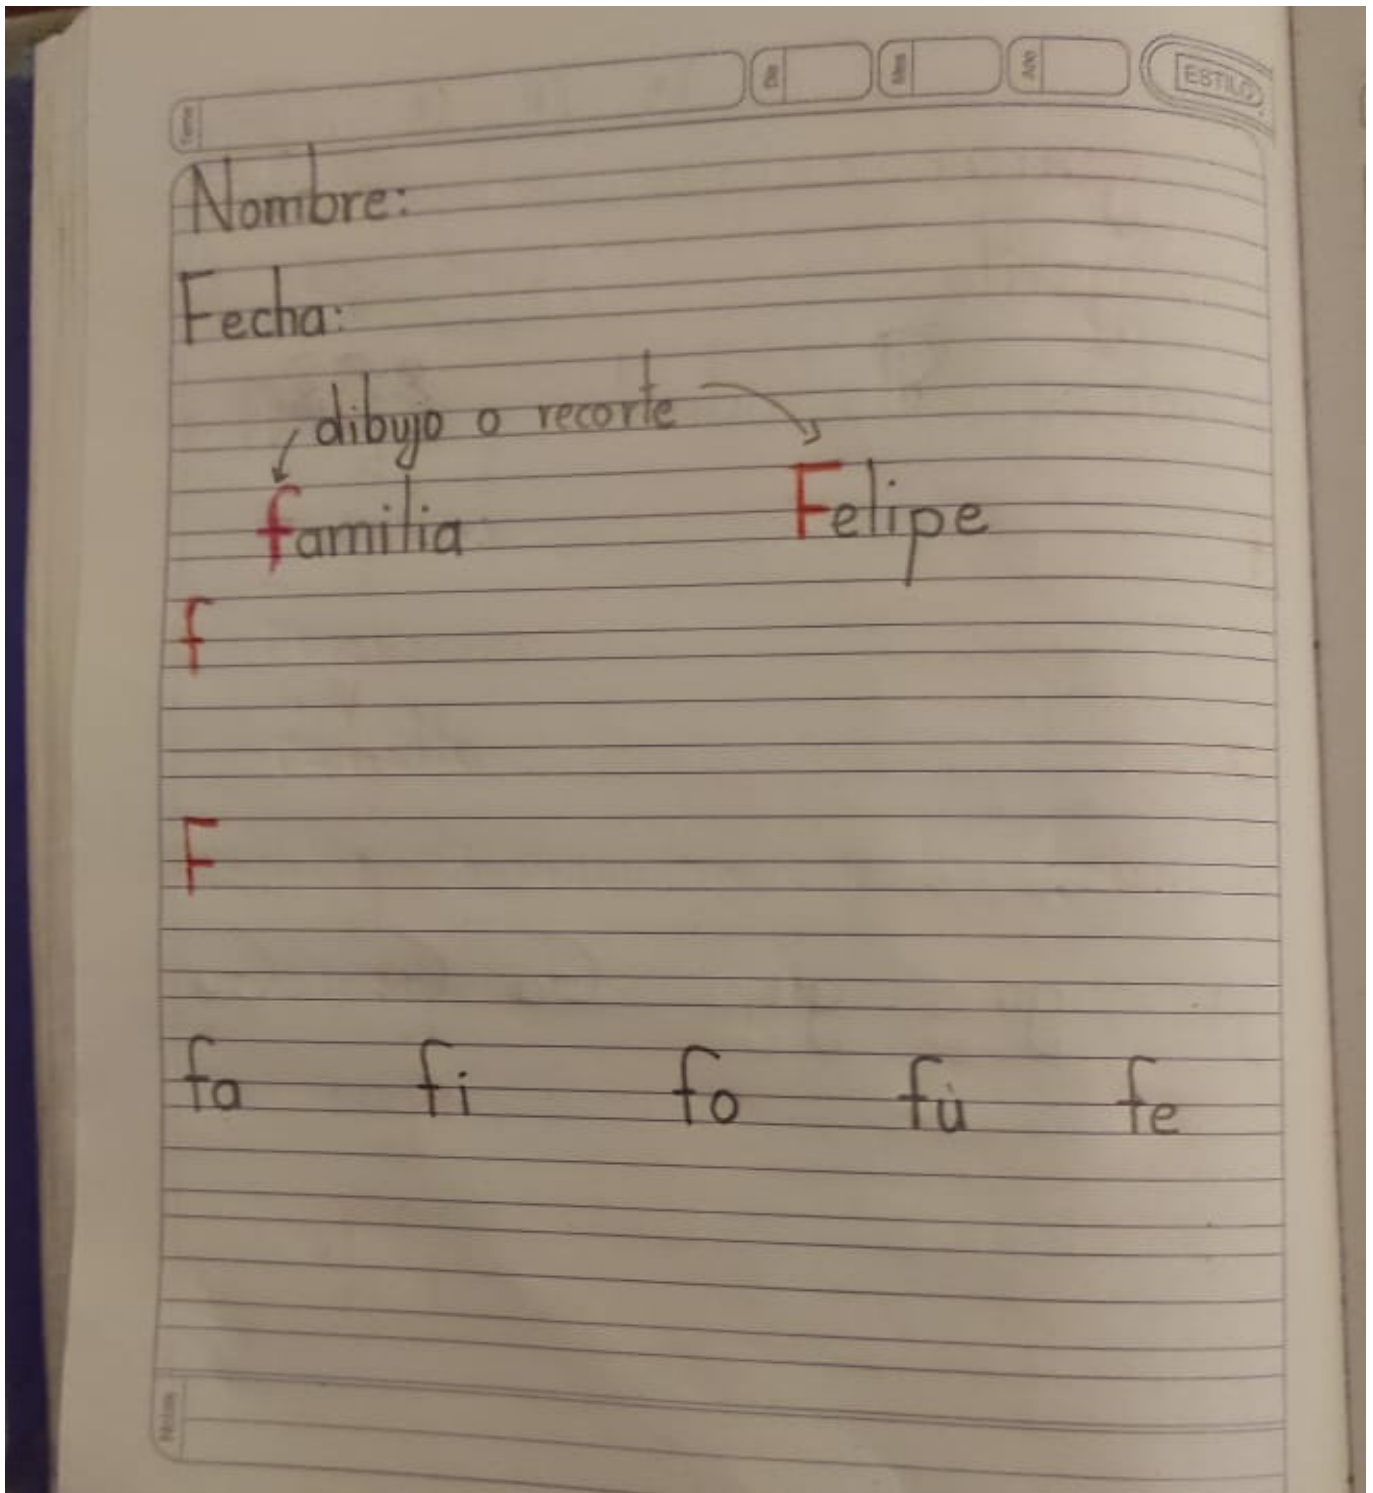 Tema Día Mes Año ESTILO
Nombre:
Fecha:
dibujo o recorte
familia Felipe
f
F
fa fi fo fu fe
Notas